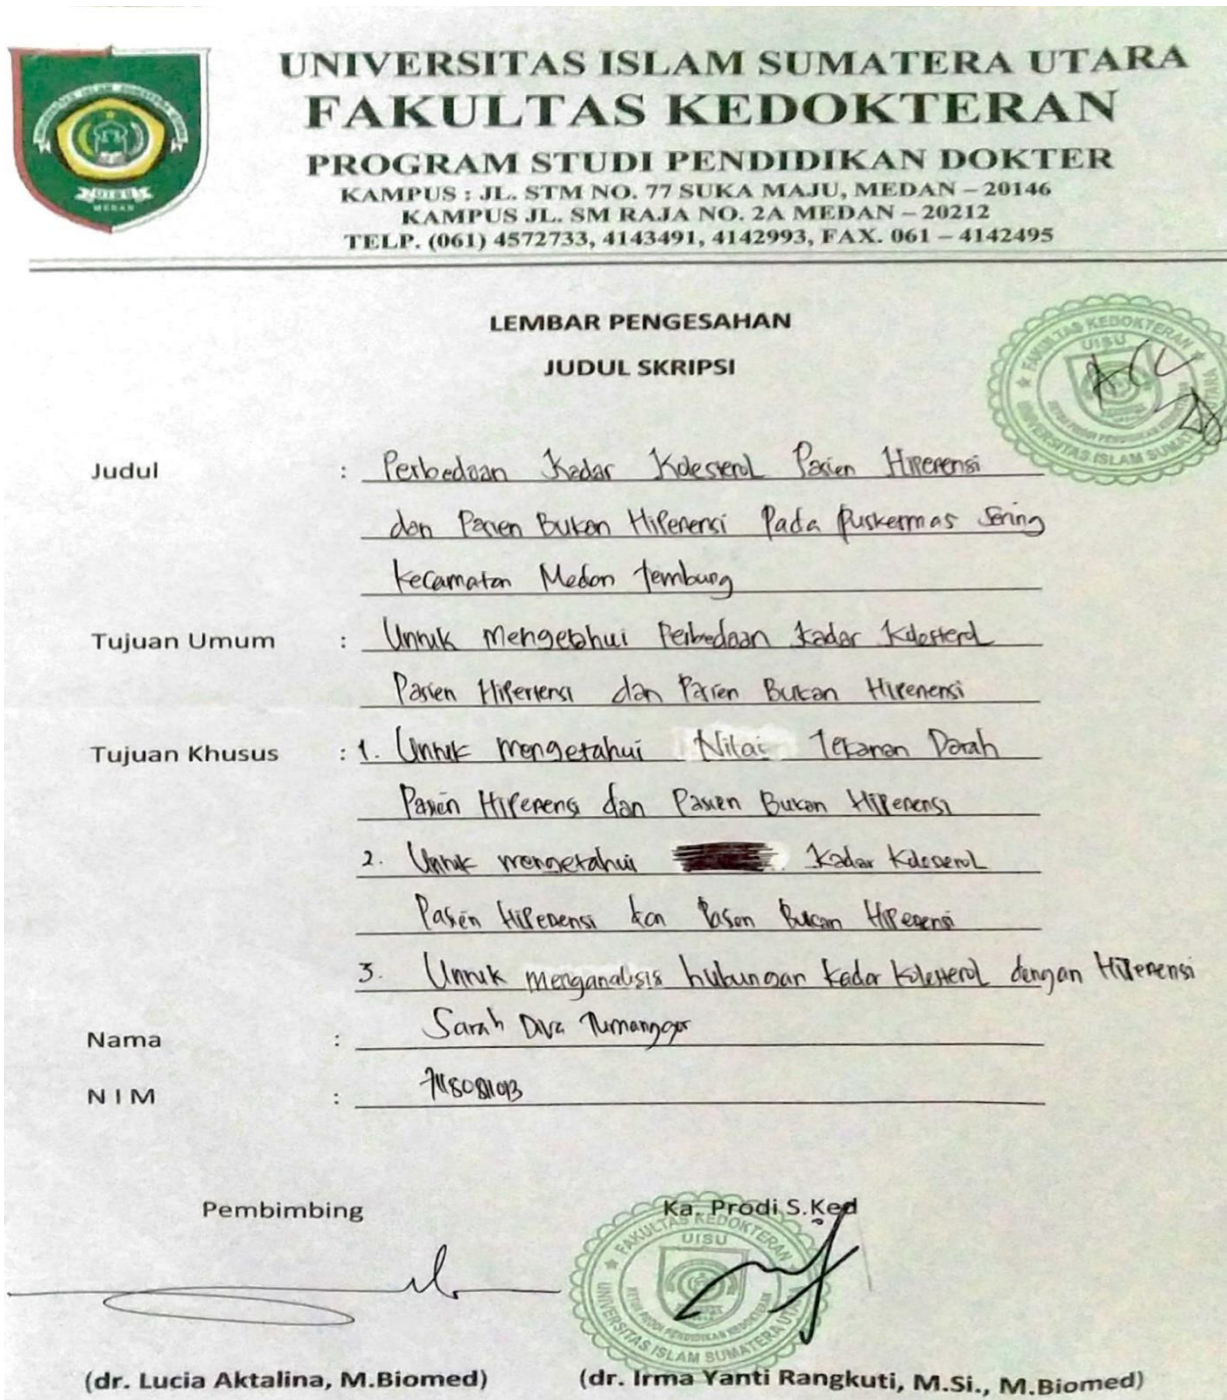 UNIVERSITAS ISLAM SUMATERA UTARA
FAKULTAS KEDOKTERAN
PROGRAM STUDI PENDIDIKAN DOKTER
KAMPUS : JL. STM NO. 77 SUKA MAJU, MEDAN – 20146
KAMPUS JL. SM RAJA NO. 2A MEDAN – 20212
TELP. (061) 4572733, 4143491, 4142993, FAX. 061 – 4142495
UISU
MEDAN
LEMBAR PENGESAHAN
JUDUL SKRIPSI
FAKULTAS KEDOKTERAN
UISU
UNIVERSITAS ISLAM SUMATERA UTARA
ACC
Judul : Perbedaan Kadar Kolesterol Pasien Hipertensi
dan Pasien Bukan Hipertensi Pada Puskermas Sering
Kecamatan Medan Tembung
Tujuan Umum : Untuk Mengetahui Perbedaan Kadar Kolesterol
Pasien Hipertensi dan Pasien Bukan Hipertensi
Tujuan Khusus : 1. Untuk mengetahui Nilai Tekanan Darah
Pasien Hipertensi dan Pasien Bukan Hipertensi
2. Untuk mengetahui Kadar Kolesterol
Pasien Hipertensi dan Pasien Bukan Hipertensi
3. Untuk menganalisis hubungan kadar kolesterol dengan Hipertensi
Nama : Sarah Diva Tumanggor
NIM :
Pembimbing
Ka. Prodi S.Ked
FAKULTAS KEDOKTERAN
UISU
UNIVERSITAS ISLAM SUMATERA UTARA
(dr. Lucia Aktalina, M.Biomed)
(dr. Irma Yanti Rangkuti, M.Si., M.Biomed)